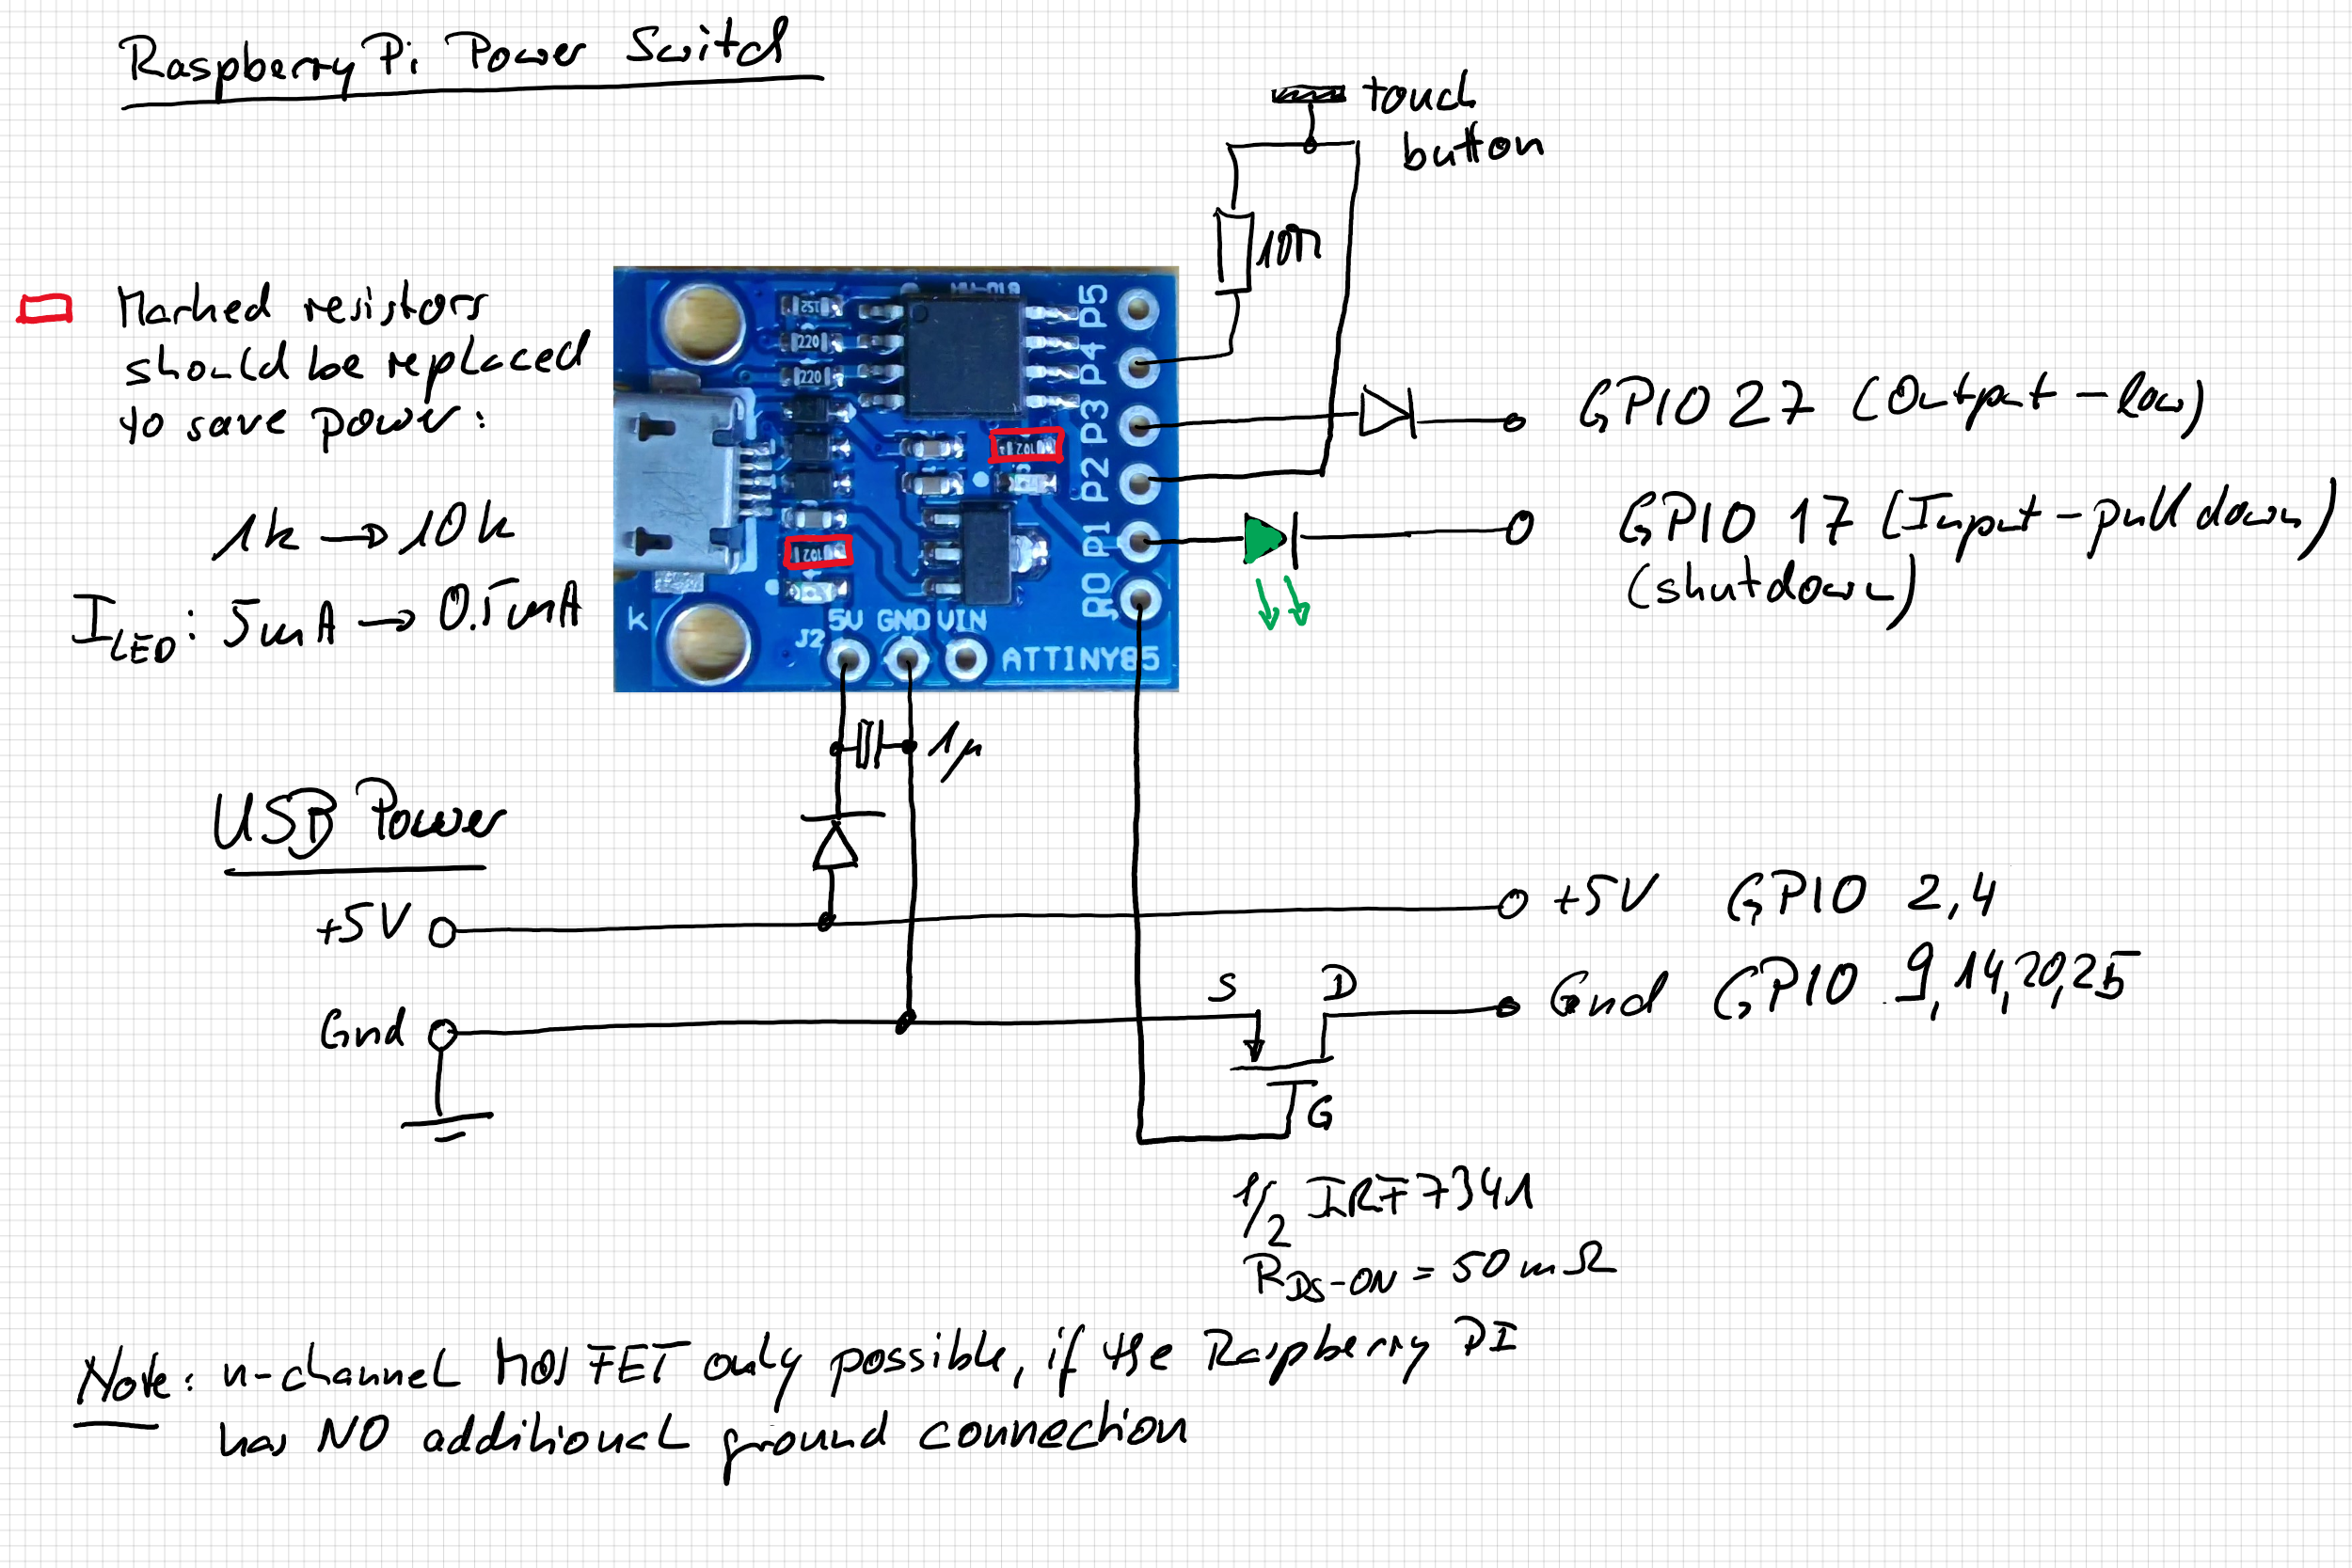 Raspberry Pi Power Switch
touch
button
10M
Marked resistors
should be replaced
to save power:
1k → 10k
I_LED: 5mA → 0.5mA
220
220
102
102
P5
P4
P3
P2
P1
P0
k
J2
5V GND VIN
ATTINY85
GPIO 27 (Output-low)
GPIO 17 (Input-pull down)
(shutdown)
1µ
USB Power
+5V
+5V GPIO 2,4
Gnd
S D
Gnd GPIO 9,14,20,25
G
1/2 IRF7341
R_DS-ON = 50mΩ
Note: n-channel MOSFET only possible, if the Raspberry PI
has NO additional ground connection